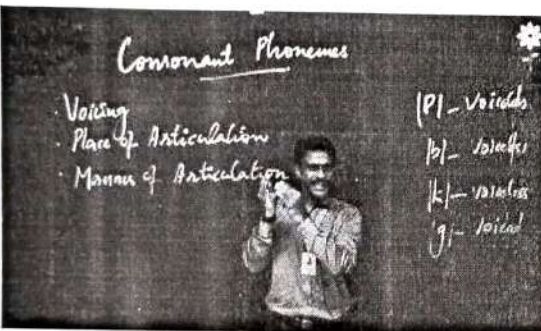 Consonant Phonemes
· Voicing
· Place of Articulation
· Manner of Articulation
|P| -
|b| -
|k| - voiceless
|g| - voiced